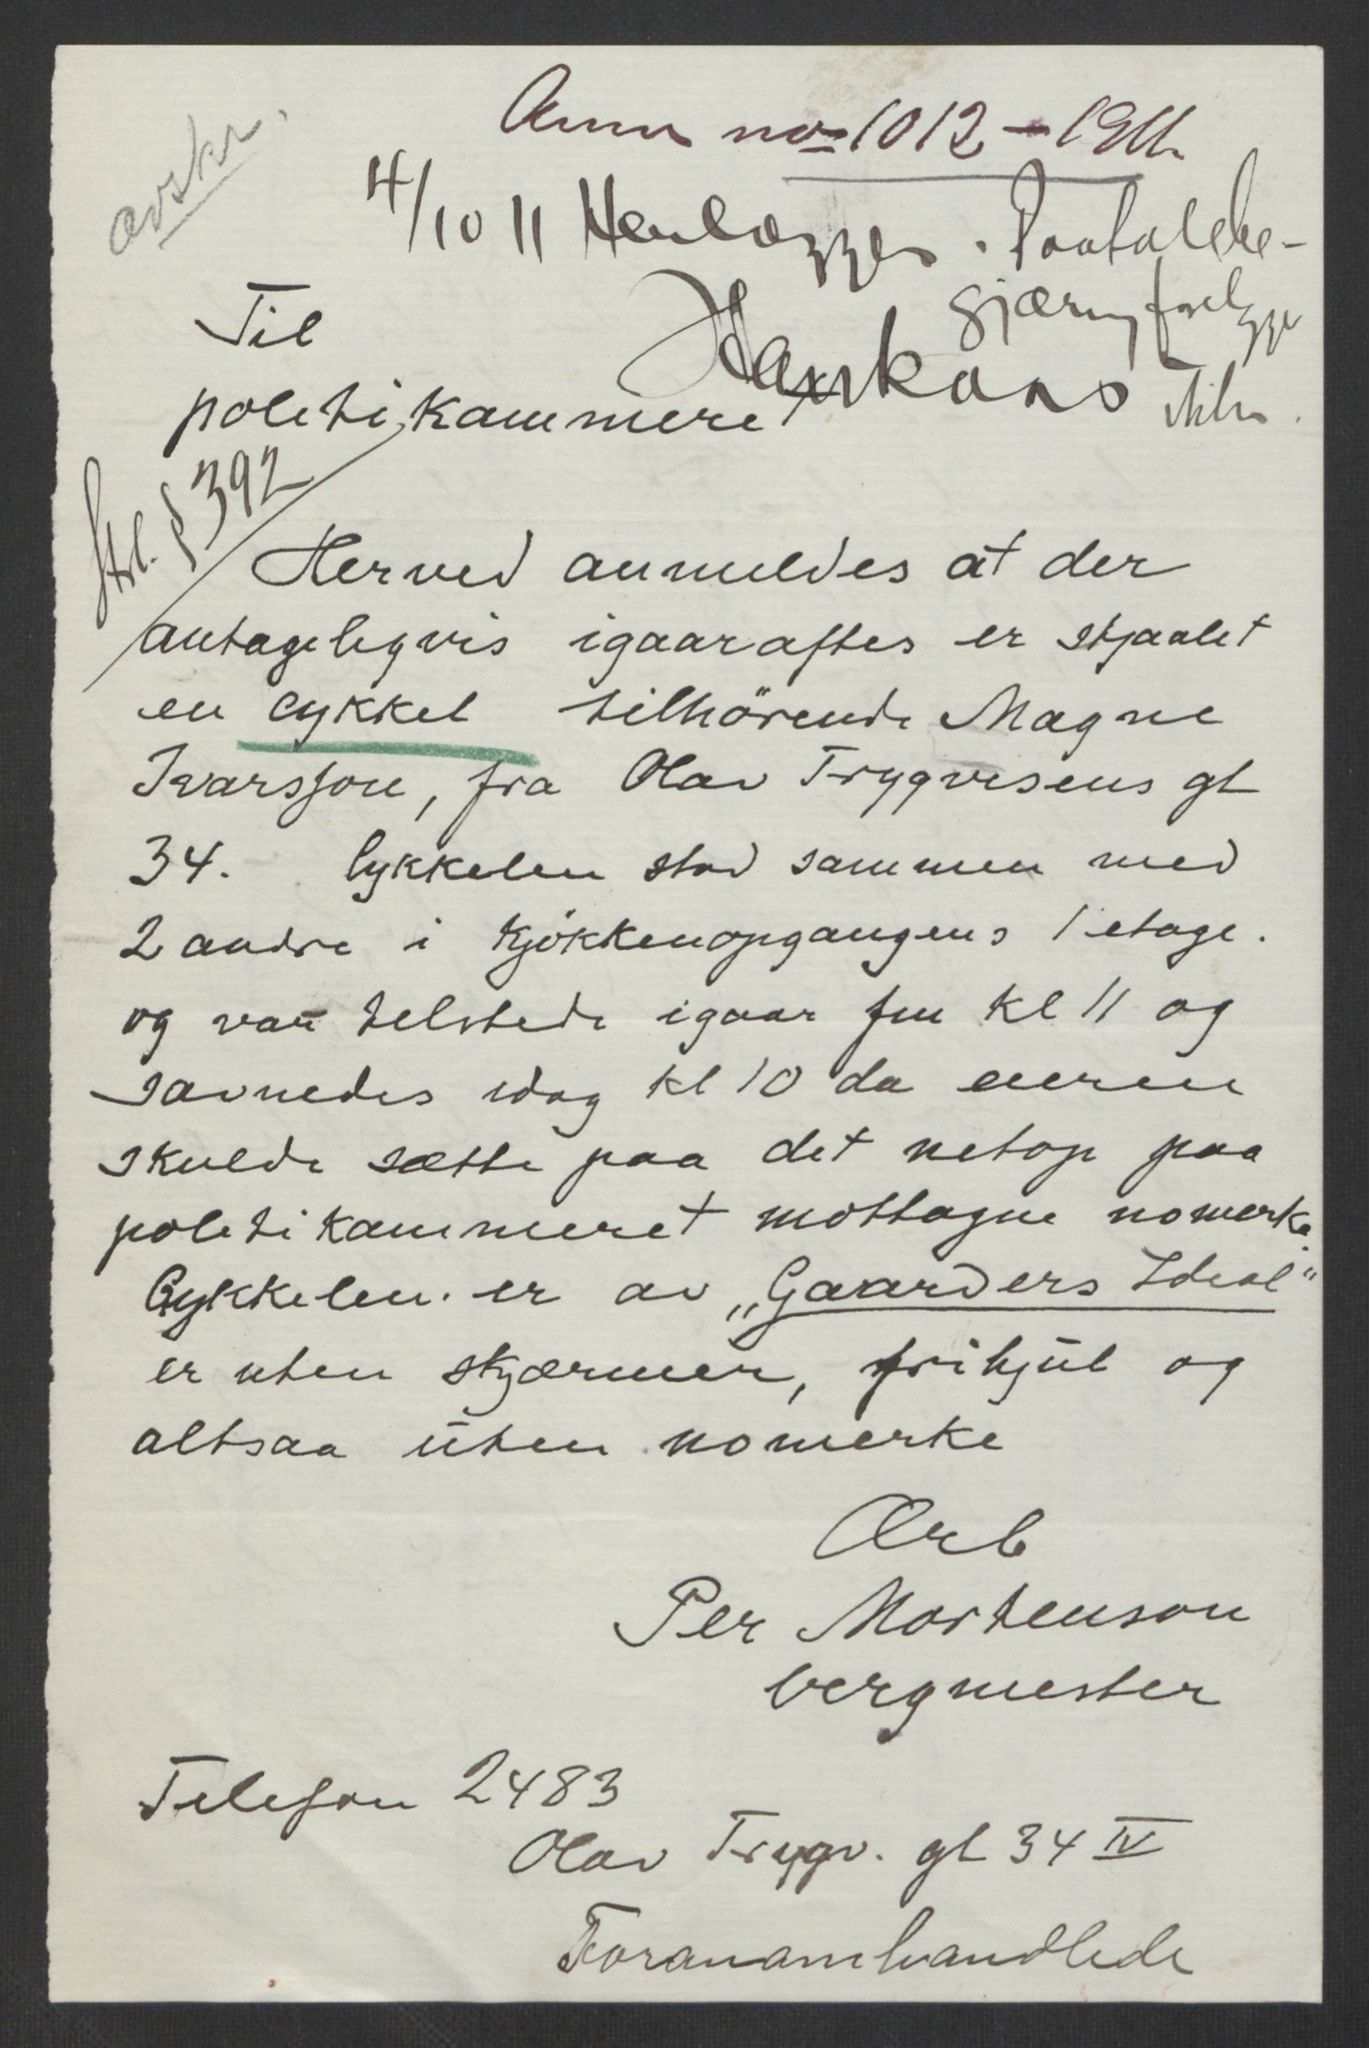 avskr.
Anm no 1012 - 1911.
4/10 11 Henlægges. Paatalebe-
gjæring forelægges
ikke.
Til
politikammeret
Strl. § 392
Herved anmeldes at der
antageligvis igaaraftes er stjaalet
en cykkel tilhörende Magne
Ivarsson, fra Olav Trygvesens gt
34. Cykkelen stod sammen med
2 andre i kjökkenopgangens 1 etage.
og var tilstede igaar fm kl 11 og
savnedes idag kl 10 da eieren
skulde sætte paa det netop paa
politikammeret mottagne nomerke.
Cykkelen er av „Gaarders Ideal"
er uten skjærmer, frihjül og
altsaa üten nomerke
Ærb
Per Mortenson
bergmester
Telefon 2483
Olav Trygv. gt 34 IV